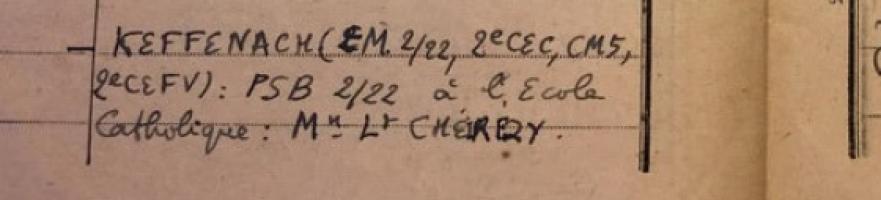 — KEFFENACH (EM. 2/22, 2e CEC, CM5,
2e CEFV) : PSB 2/22 à l'Ecole
Catholique : Mn Lt